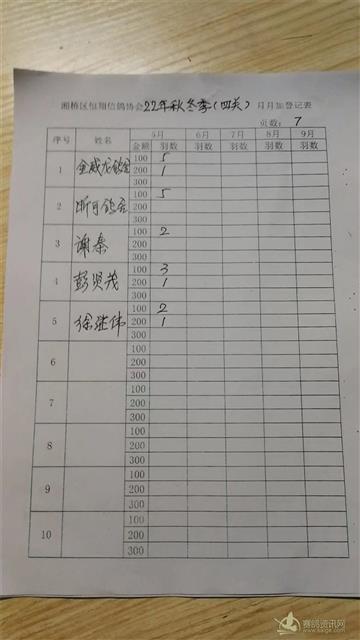 湘桥区恒翔信鸽协会22年秋冬季(四关)月月加登记表
页数: 7
序号 姓名 5月 6月 7月 8月 9月
金额 羽数 羽数 羽数 羽数 羽数
1 金威龙鸽舍 100 5
200 1
300
2 鸽舍 100 5
200
300
3 谢秦 100 2
200
300
4 彭贤茂 100 3
200 1
300
5 徐继伟 100 2
200 1
300
6 100
200
300
7 100
200
300
8 100
200
300
9 100
200
300
10 100
200
300
赛鸽资讯网
www.saige.com